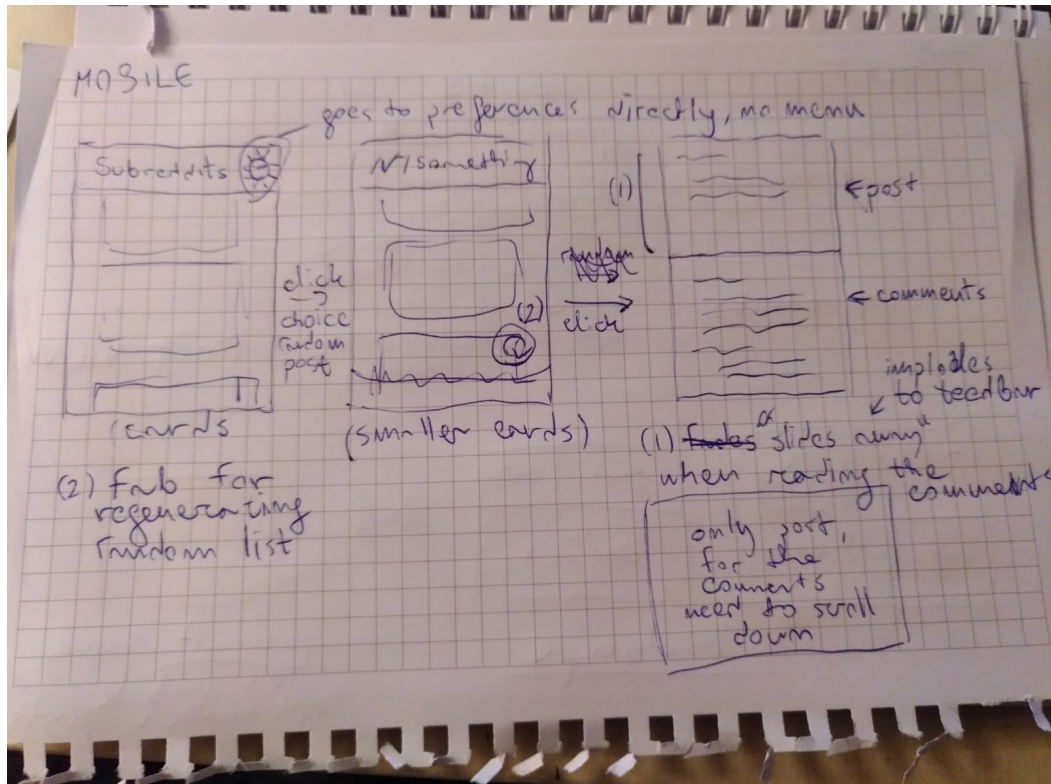 MOBILE
goes to preferences directly, no menu
Subreddits
click
→
choice
random
post
cards
r/something
(2)
(smaller cards)
click
(1)
← post
← comments
implodes
to
(1) fades or "slides away"
when reading the
comments
only post,
for the
comments
need to scroll
down
(2) Fab for
regenerating
random list